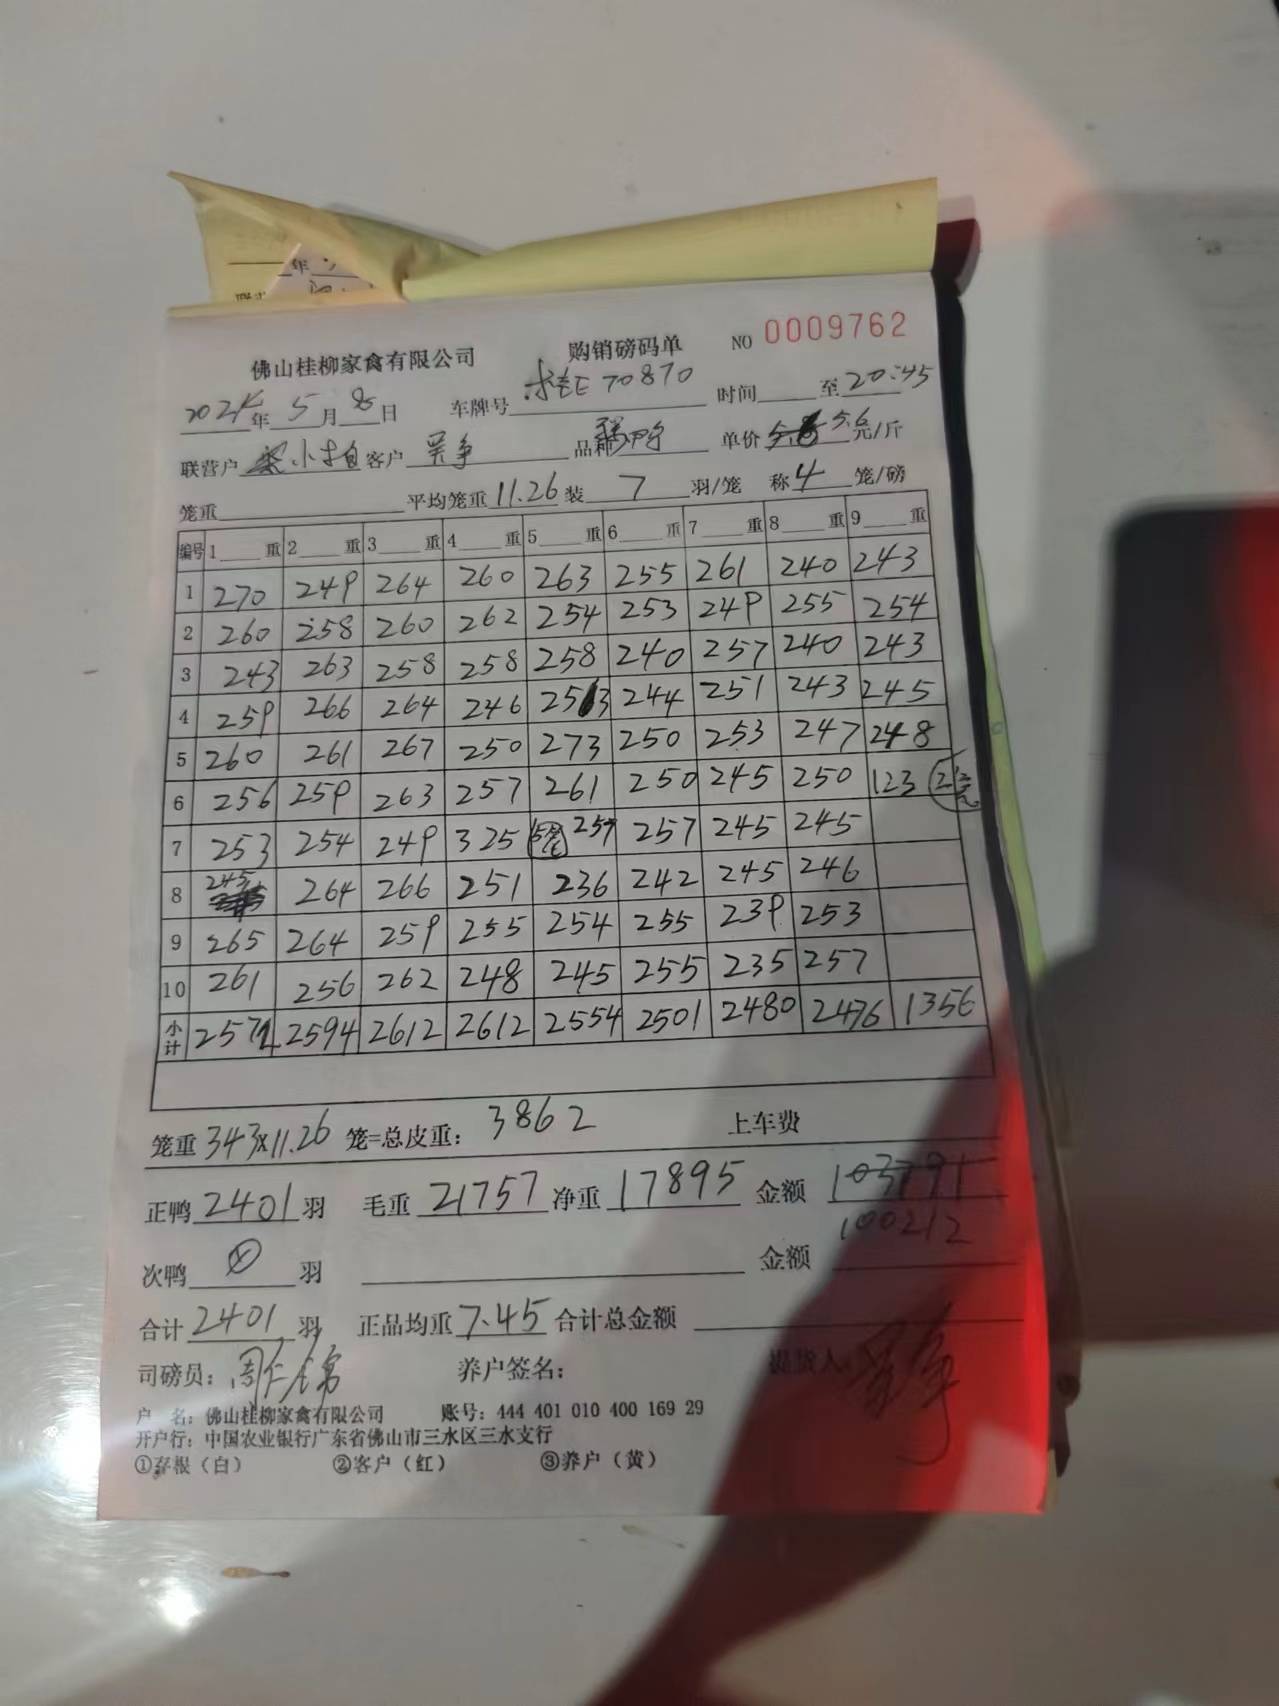 年
佛山桂柳家禽有限公司 购销磅码单 NO 0009762
2024年5月8日 车牌号 桂E70870 时间 至20:45
联营户 小柏 客户 吴争 品种 单价 5.6 元/斤
笼重 平均笼重 11.26 装 7 羽/笼 称 4 笼/磅
编号 1 重 2 重 3 重 4 重 5 重 6 重 7 重 8 重 9 重
1 270 249 264 260 263 255 261 240 243
2 260 258 260 262 254 253 249 255 254
3 243 263 258 258 258 240 257 240 243
4 259 266 264 246 253 244 251 243 245
5 260 261 267 250 273 250 253 247 248
6 256 259 263 257 261 250 245 250 123 2笼
7 253 254 249 325 5笼 257 257 245 245
8 245 264 266 251 236 242 245 246
9 265 264 259 255 254 255 239 253
10 261 256 262 248 245 255 235 257
小计 2572 2594 2612 2612 2554 2501 2480 2476 1356
笼重 343x11.26 笼=总皮重: 3862 上车费
正鸭 2401 羽 毛重 21757 净重 17895 金额 103791
100212
次鸭 羽 金额
合计 2401 羽 正品均重 7.45 合计总金额
司磅员: 养户签名: 提货人: 吴争
户 名: 佛山桂柳家禽有限公司 账号: 444 401 010 400 169 29
开户行: 中国农业银行广东省佛山市三水区三水支行
①存根（白） ②客户（红） ③养户（黄）